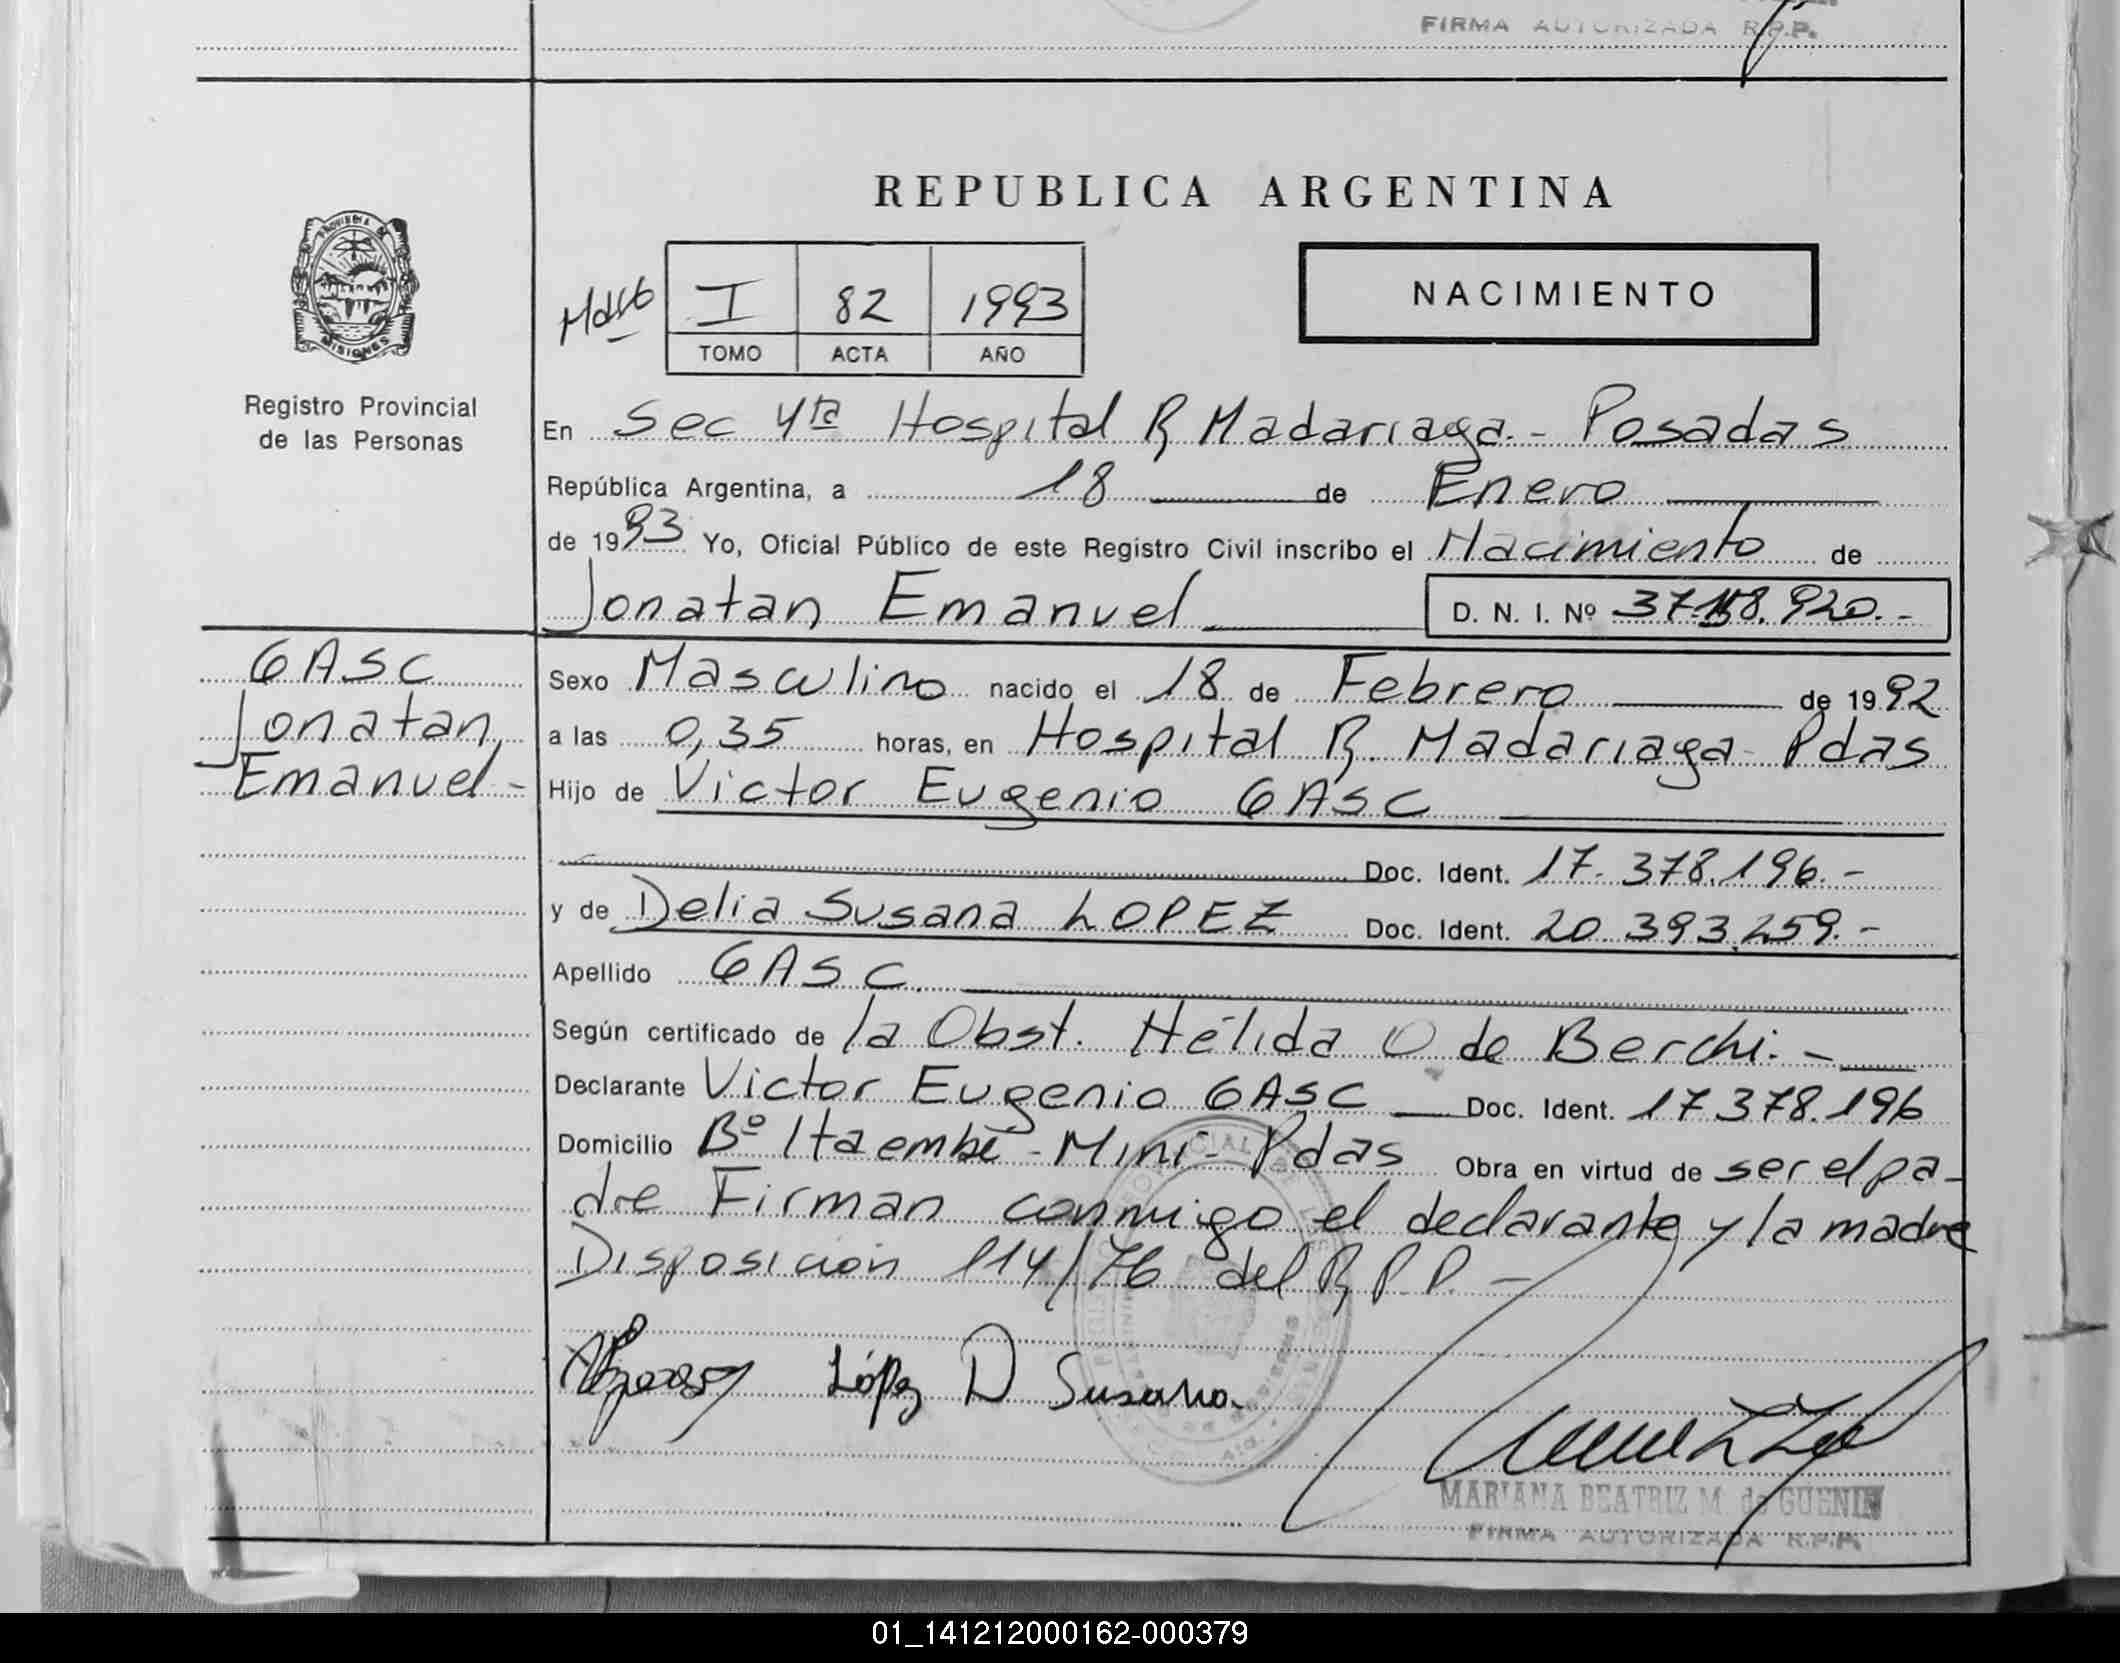 FIRMA AUTORIZADA R.P.P.
REPUBLICA ARGENTINA
PROVINCIA DE
MISIONES
Registro Provincial
de las Personas
I 82 1993
TOMO ACTA AÑO
NACIMIENTO
En Sec 4ta Hospital R Madariaga.- Posadas
República Argentina, a 18 de Enero
de 1993 Yo, Oficial Público de este Registro Civil inscribo el Nacimiento de
Jonatan Emanuel D. N. I. Nº 37.158.920.-
GASC
Jonatan,
Emanuel-
Sexo Masculino nacido el 18 de Febrero de 1992
a las 0,35 horas, en Hospital R. Madariaga- Pdas
Hijo de Victor Eugenio GASC
Doc. Ident. 17.378.196.-
y de Delia Susana LOPEZ Doc. Ident. 20.393.259.-
Apellido GASC.
Según certificado de la Obst. Hélida O de Berchi.-
Declarante Victor Eugenio GASC Doc. Ident. 17.378.196
Domicilio Bº Itaembé-Mini-Pdas Obra en virtud de ser el pa-
dre Firman conmigo el declarante y la madre
Disposición 114/76 del R.P.P.-
López D Susana.
MARIANA BEATRIZ M. de GUENIN
FIRMA AUTORIZADA R.P.P.
01_141212000162-000379